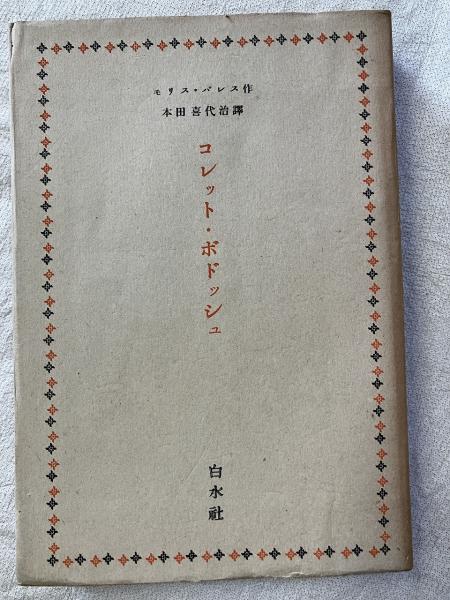 モリス・バレス作
本田喜代治譯
コレット・ボドッシュ
白水社